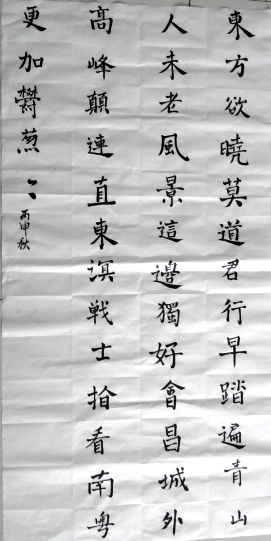 東方欲曉莫道君行早踏遍青山
人未老風景這邊獨好會昌城外
高峰顛連直東溟戰士指看南粵
更加鬱蔥〻
丙申秋